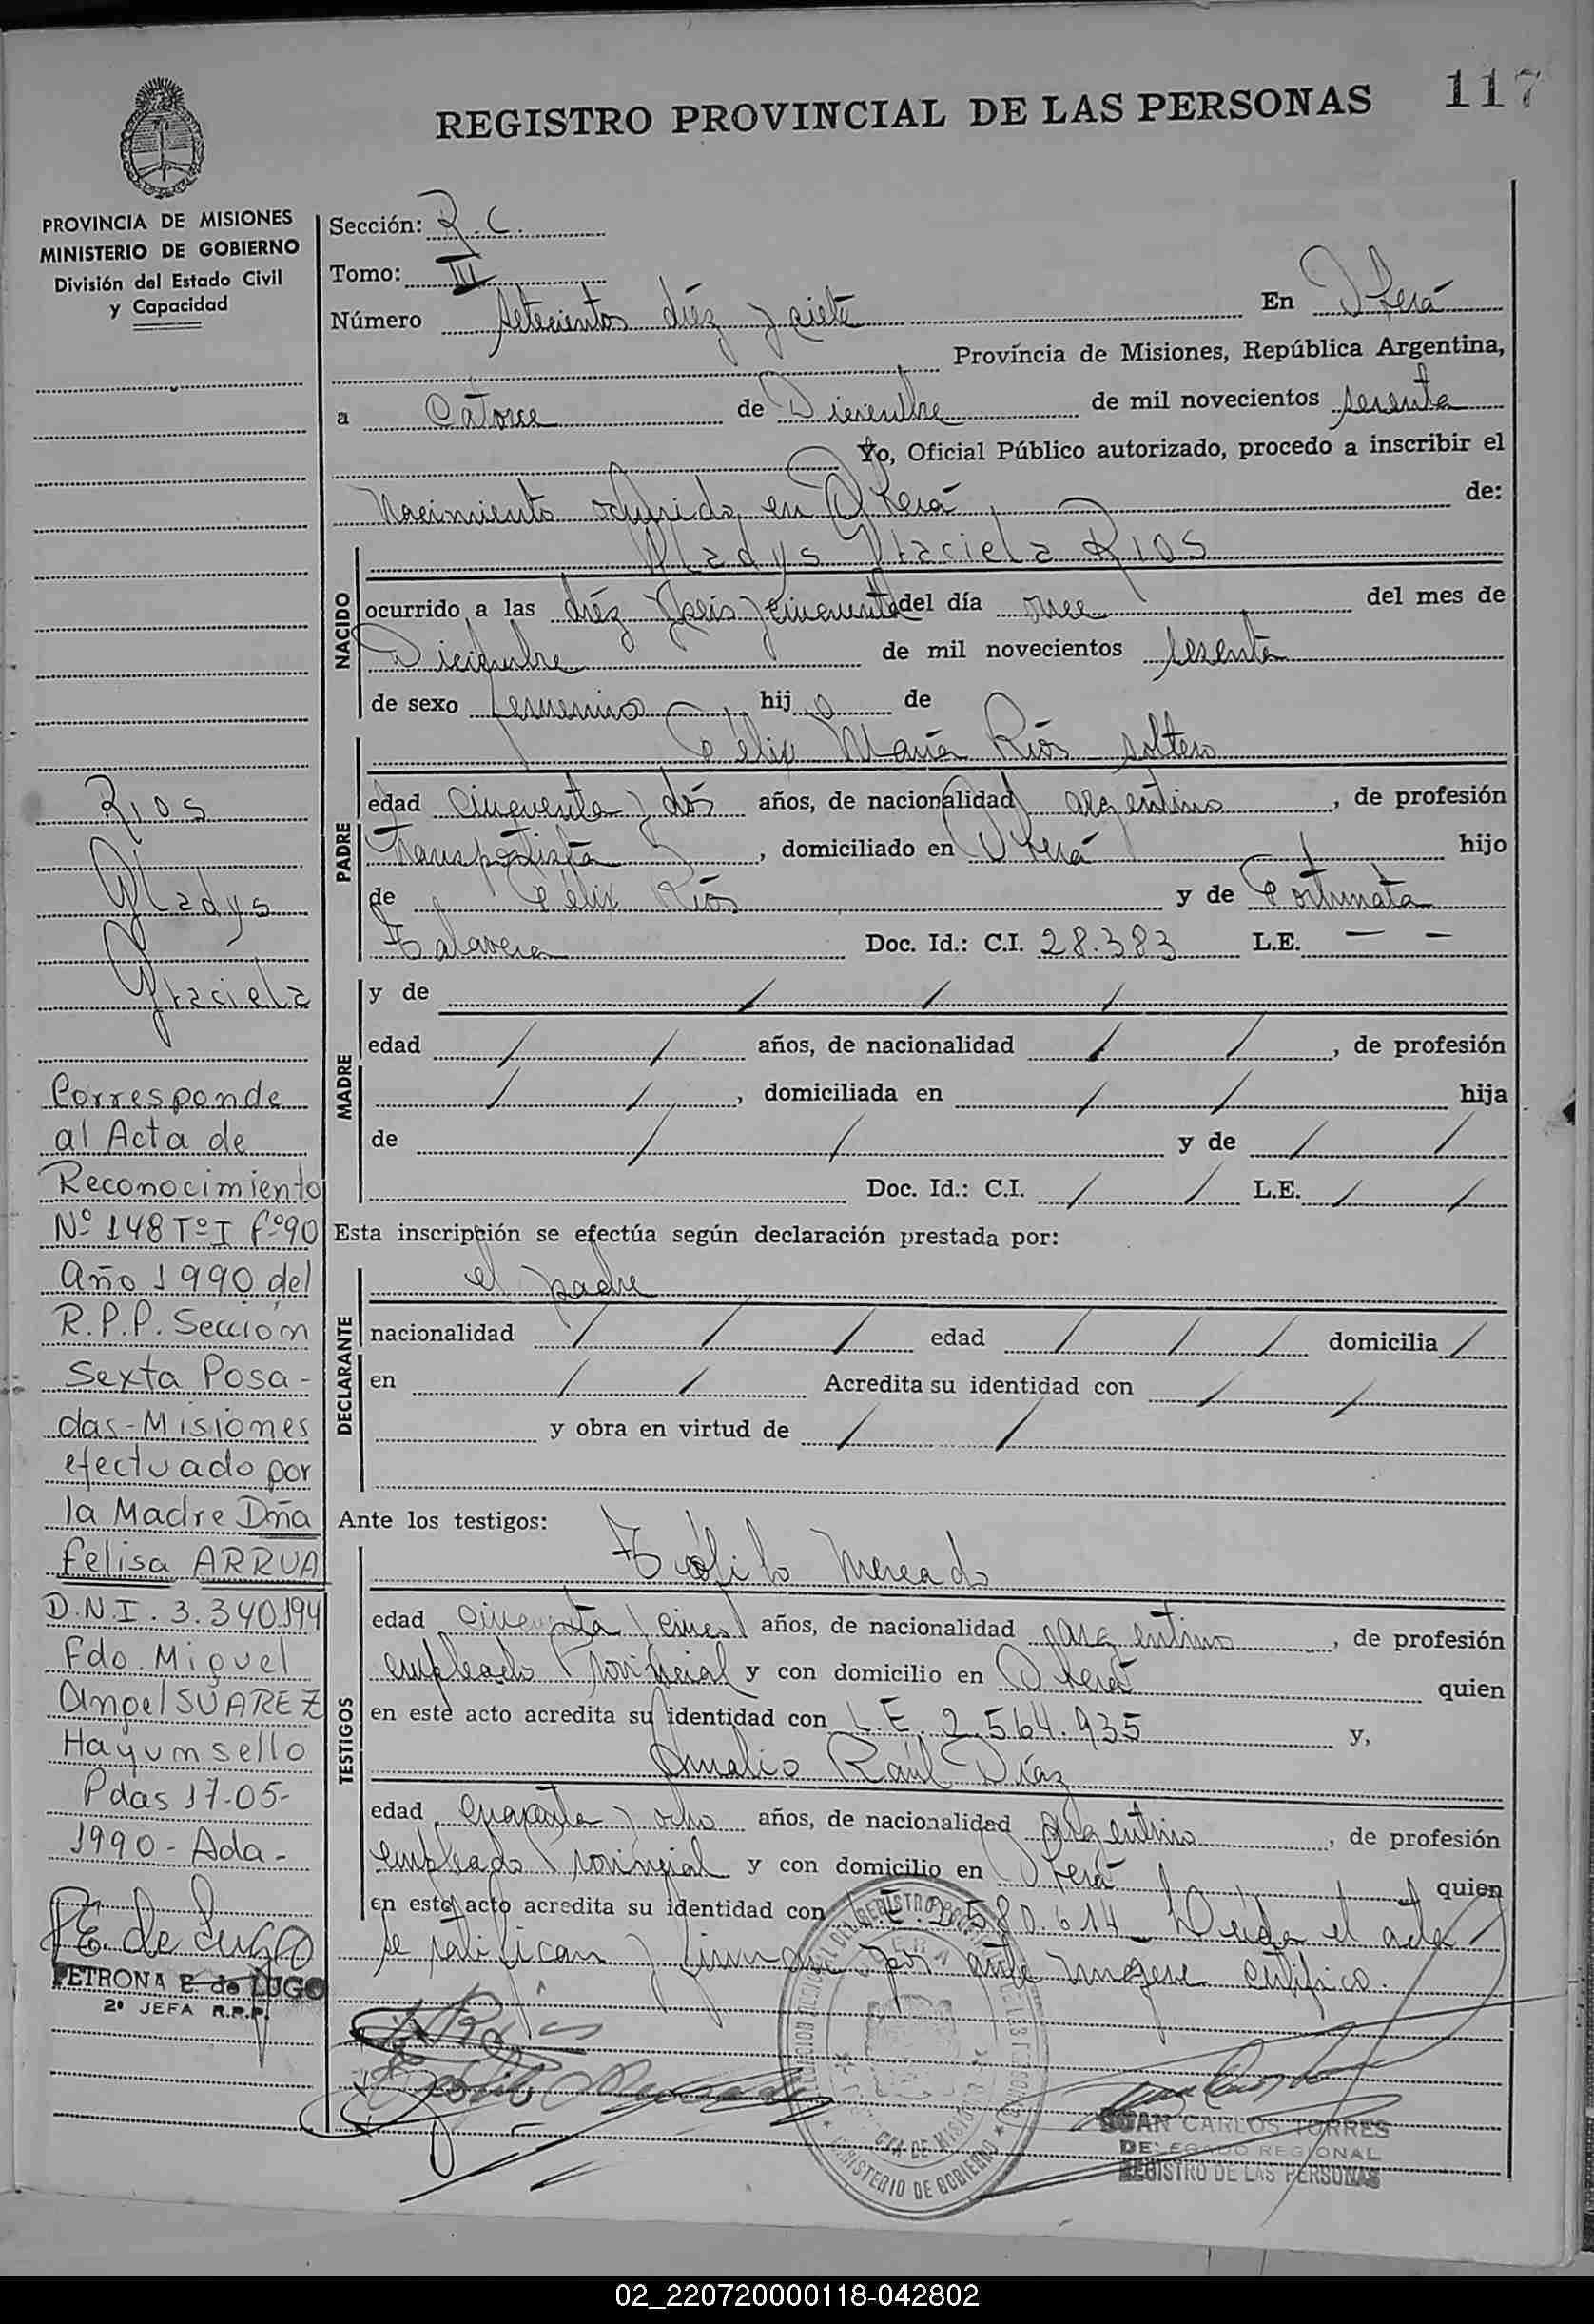 117
REGISTRO PROVINCIAL DE LAS PERSONAS
PROVINCIA DE MISIONES
MINISTERIO DE GOBIERNO
División del Estado Civil
y Capacidad
Sección: R.C.
Tomo: III
Número setecientos diéz y siete En Oberá
Província de Misiones, República Argentina,
a Catorce de Diciembre de mil novecientos sesenta
Yo, Oficial Público autorizado, procedo a inscribir el
Nacimiento ocurrido en Oberá de:
Gladys Graciela RIOS
NACIDO
ocurrido a las diéz y seis y cincuenta del día once del mes de
Diciembre de mil novecientos sesenta
de sexo femenino hija de
PADRE
Félix María Ríos soltero
edad cincuenta y dos años, de nacionalidad argentino, de profesión
Transportista, domiciliado en Oberá hijo
de Félix Ríos y de Fortunata
Talavera Doc. Id.: C.I. 28.383 L.E. — —
MADRE
y de / / /
edad / / años, de nacionalidad / / , de profesión
/ / , domiciliada en / / hija
de / / y de / /
Doc. Id.: C.I. / / L.E. / /
Esta inscripción se efectúa según declaración prestada por:
DECLARANTE
el padre
nacionalidad / / / edad / / / domicilia /
en / / Acredita su identidad con / /
y obra en virtud de / /
Ante los testigos:
TESTIGOS
Teófilo Mercado
edad cincuenta y cinco años, de nacionalidad argentino, de profesión
empleado Provincial y con domicilio en Oberá quien
en este acto acredita su identidad con L.E. 2.564.935 y,
Amalio Raúl Díaz
edad cuarenta y ocho años, de nacionalidad argentino, de profesión
empleado Provincial y con domicilio en Oberá quien
en este acto acredita su identidad con L.E. 580.614 Leída el acta
se ratifican y firman por ante certifico.
RIOS
Gladys
Graciela
Corresponde
al Acta de
Reconocimiento
Nº 148 Tº I fº 90
Año 1990 del
R.P.P. Sección
Sexta Posa-
das-Misiones
efectuado por
la Madre Dña
Felisa ARRUA
D.N.I. 3.340.194
Fdo. Miguel
Angel SUAREZ
Hay un sello
Pdas 17-05-
1990 - Ada-
PE de Lugo
PETRONA E. de LUGO
2º JEFA R.P.P.
JUAN CARLOS TORRES
DELEGADO REGIONAL
REGISTRO DE LAS PERSONAS
MINISTERIO DE GOBIERNO
02_220720000118-042802